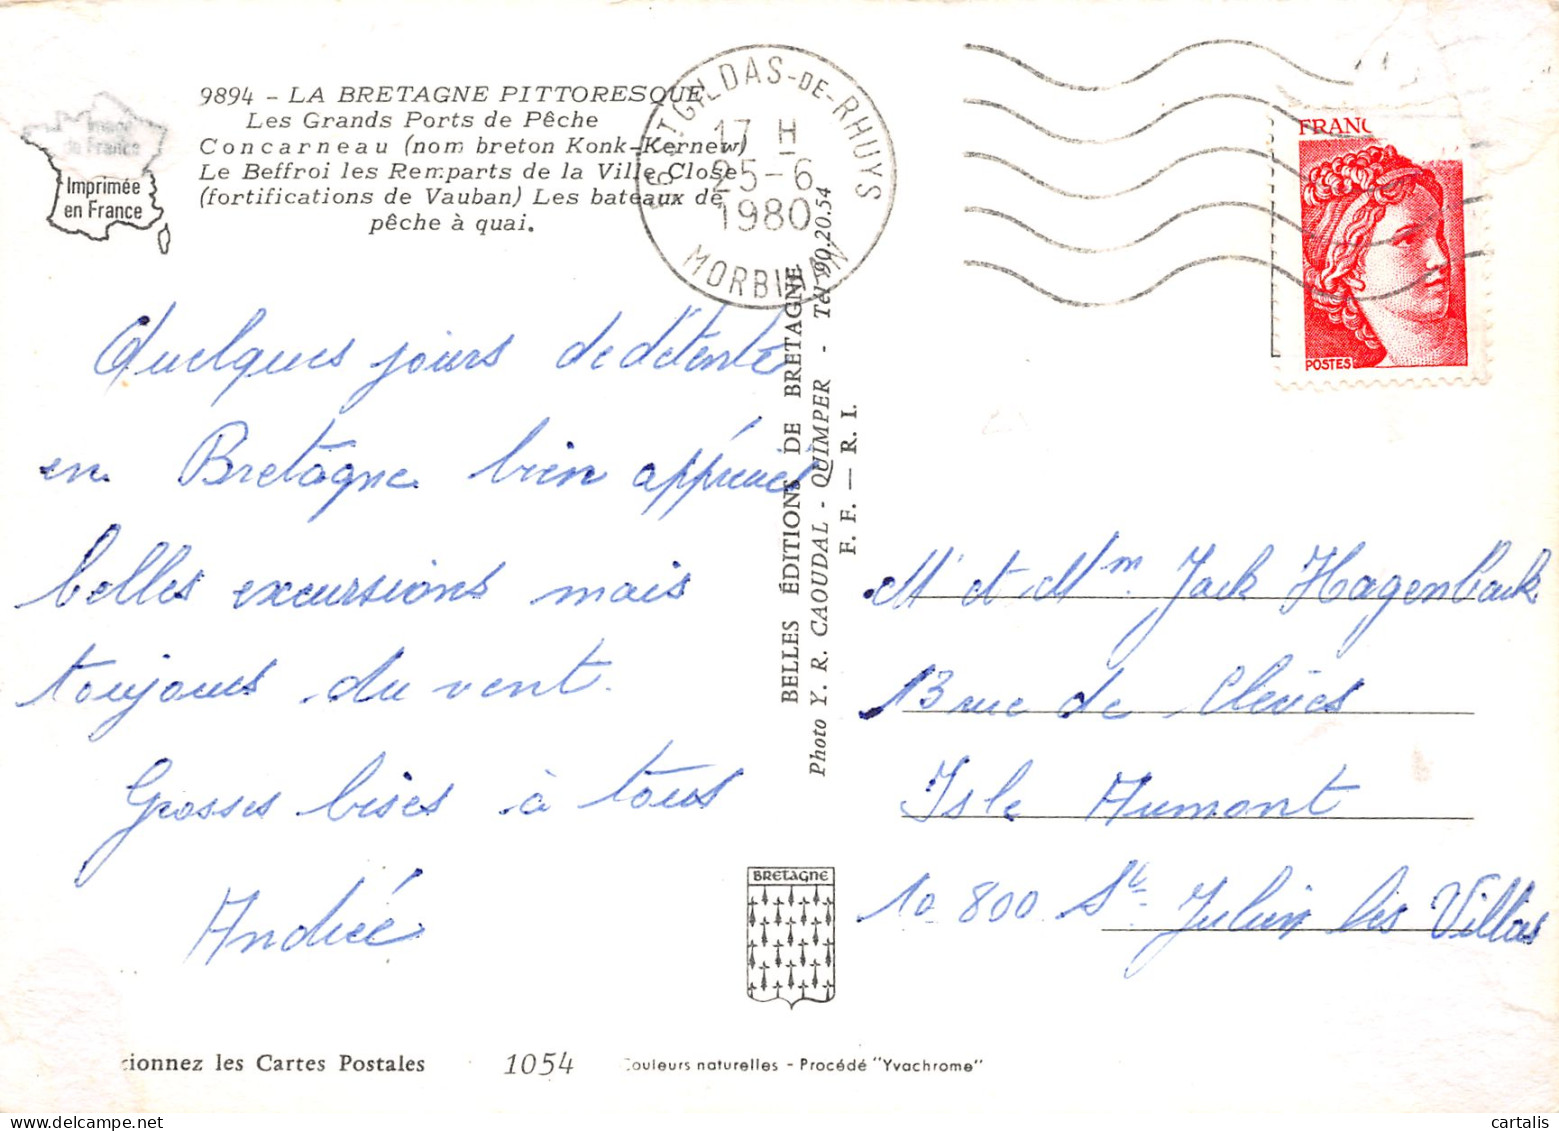 9894 - LA BRETAGNE PITTORESQUE
Les Grands Ports de Pêche
Concarneau (nom breton Konk-Kernew)
Le Beffroi les Remparts de la Ville Close
(fortifications de Vauban) Les bateaux de
pêche à quai.
Imprimée
en France
ST GILDAS-DE-RHUYS
17 H
25-6
1980
MORBIHAN
FRANC
POSTES
Quelques jours de détente
en Bretagne bien apprécié
belles excursions mais
toujours du vent.
Grosses bises à tous
Andrée
BELLES ÉDITIONS DE BRETAGNE
Photo Y. R. CAOUDAL - QUIMPER - Tél 90.20.54
F. F. — R. I.
Mr et Mm. Jack Hagenback
13 rue de Clèves
Isle Aumont
10 800 St Julien les Villas
BRETAGNE
cionnez les Cartes Postales
1054
Couleurs naturelles - Procédé "Yvachrome"
cartalis
www.delcampe.net